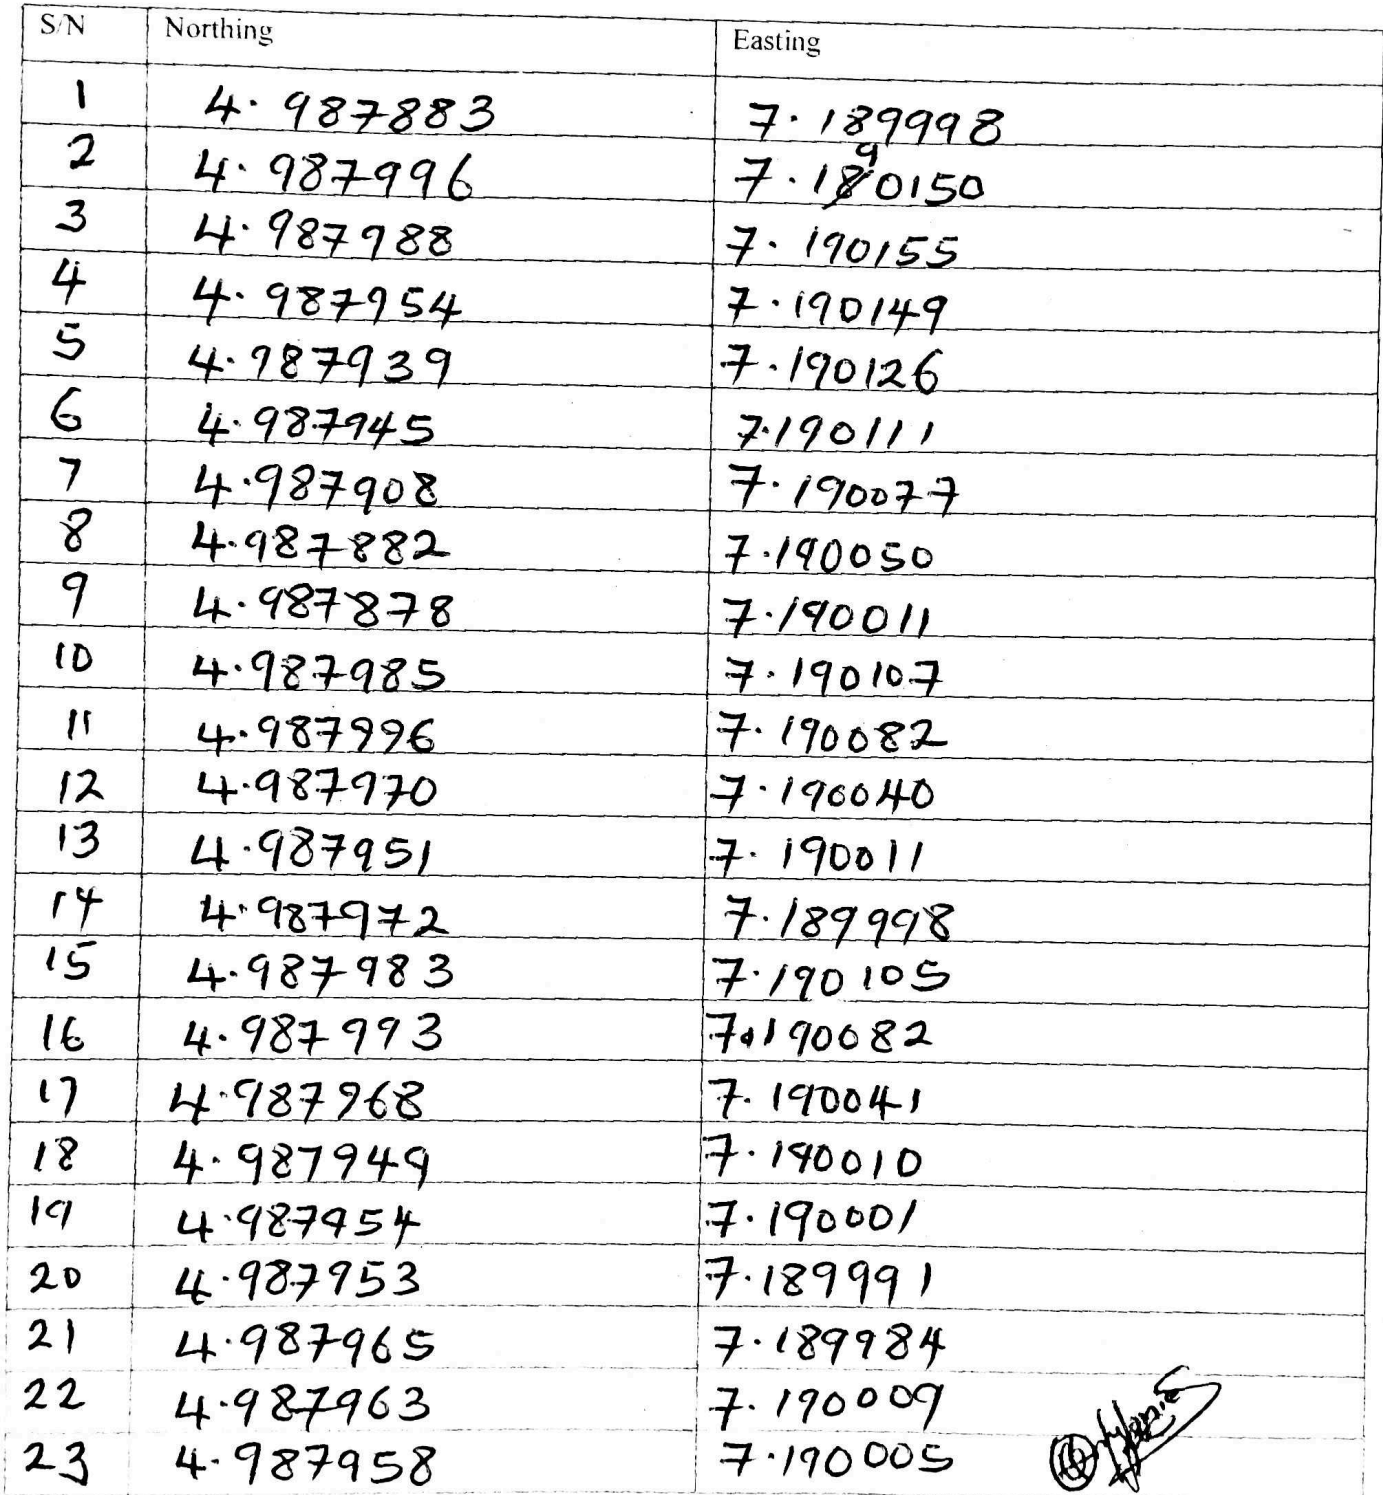 S/N Northing Easting
1 4.987883 7.189998
2 4.987996 7.190150
3 4.987988 7.190155
4 4.987954 7.190149
5 4.987939 7.190126
6 4.987945 7.190111
7 4.987908 7.190077
8 4.987882 7.190050
9 4.987878 7.190011
10 4.987985 7.190107
11 4.987996 7.190082
12 4.987970 7.190040
13 4.987951 7.190011
14 4.987972 7.189998
15 4.987983 7.190105
16 4.987993 7.190082
17 4.987968 7.190041
18 4.987949 7.190010
19 4.987954 7.190001
20 4.987953 7.189991
21 4.987965 7.189984
22 4.987963 7.190009
23 4.987958 7.190005